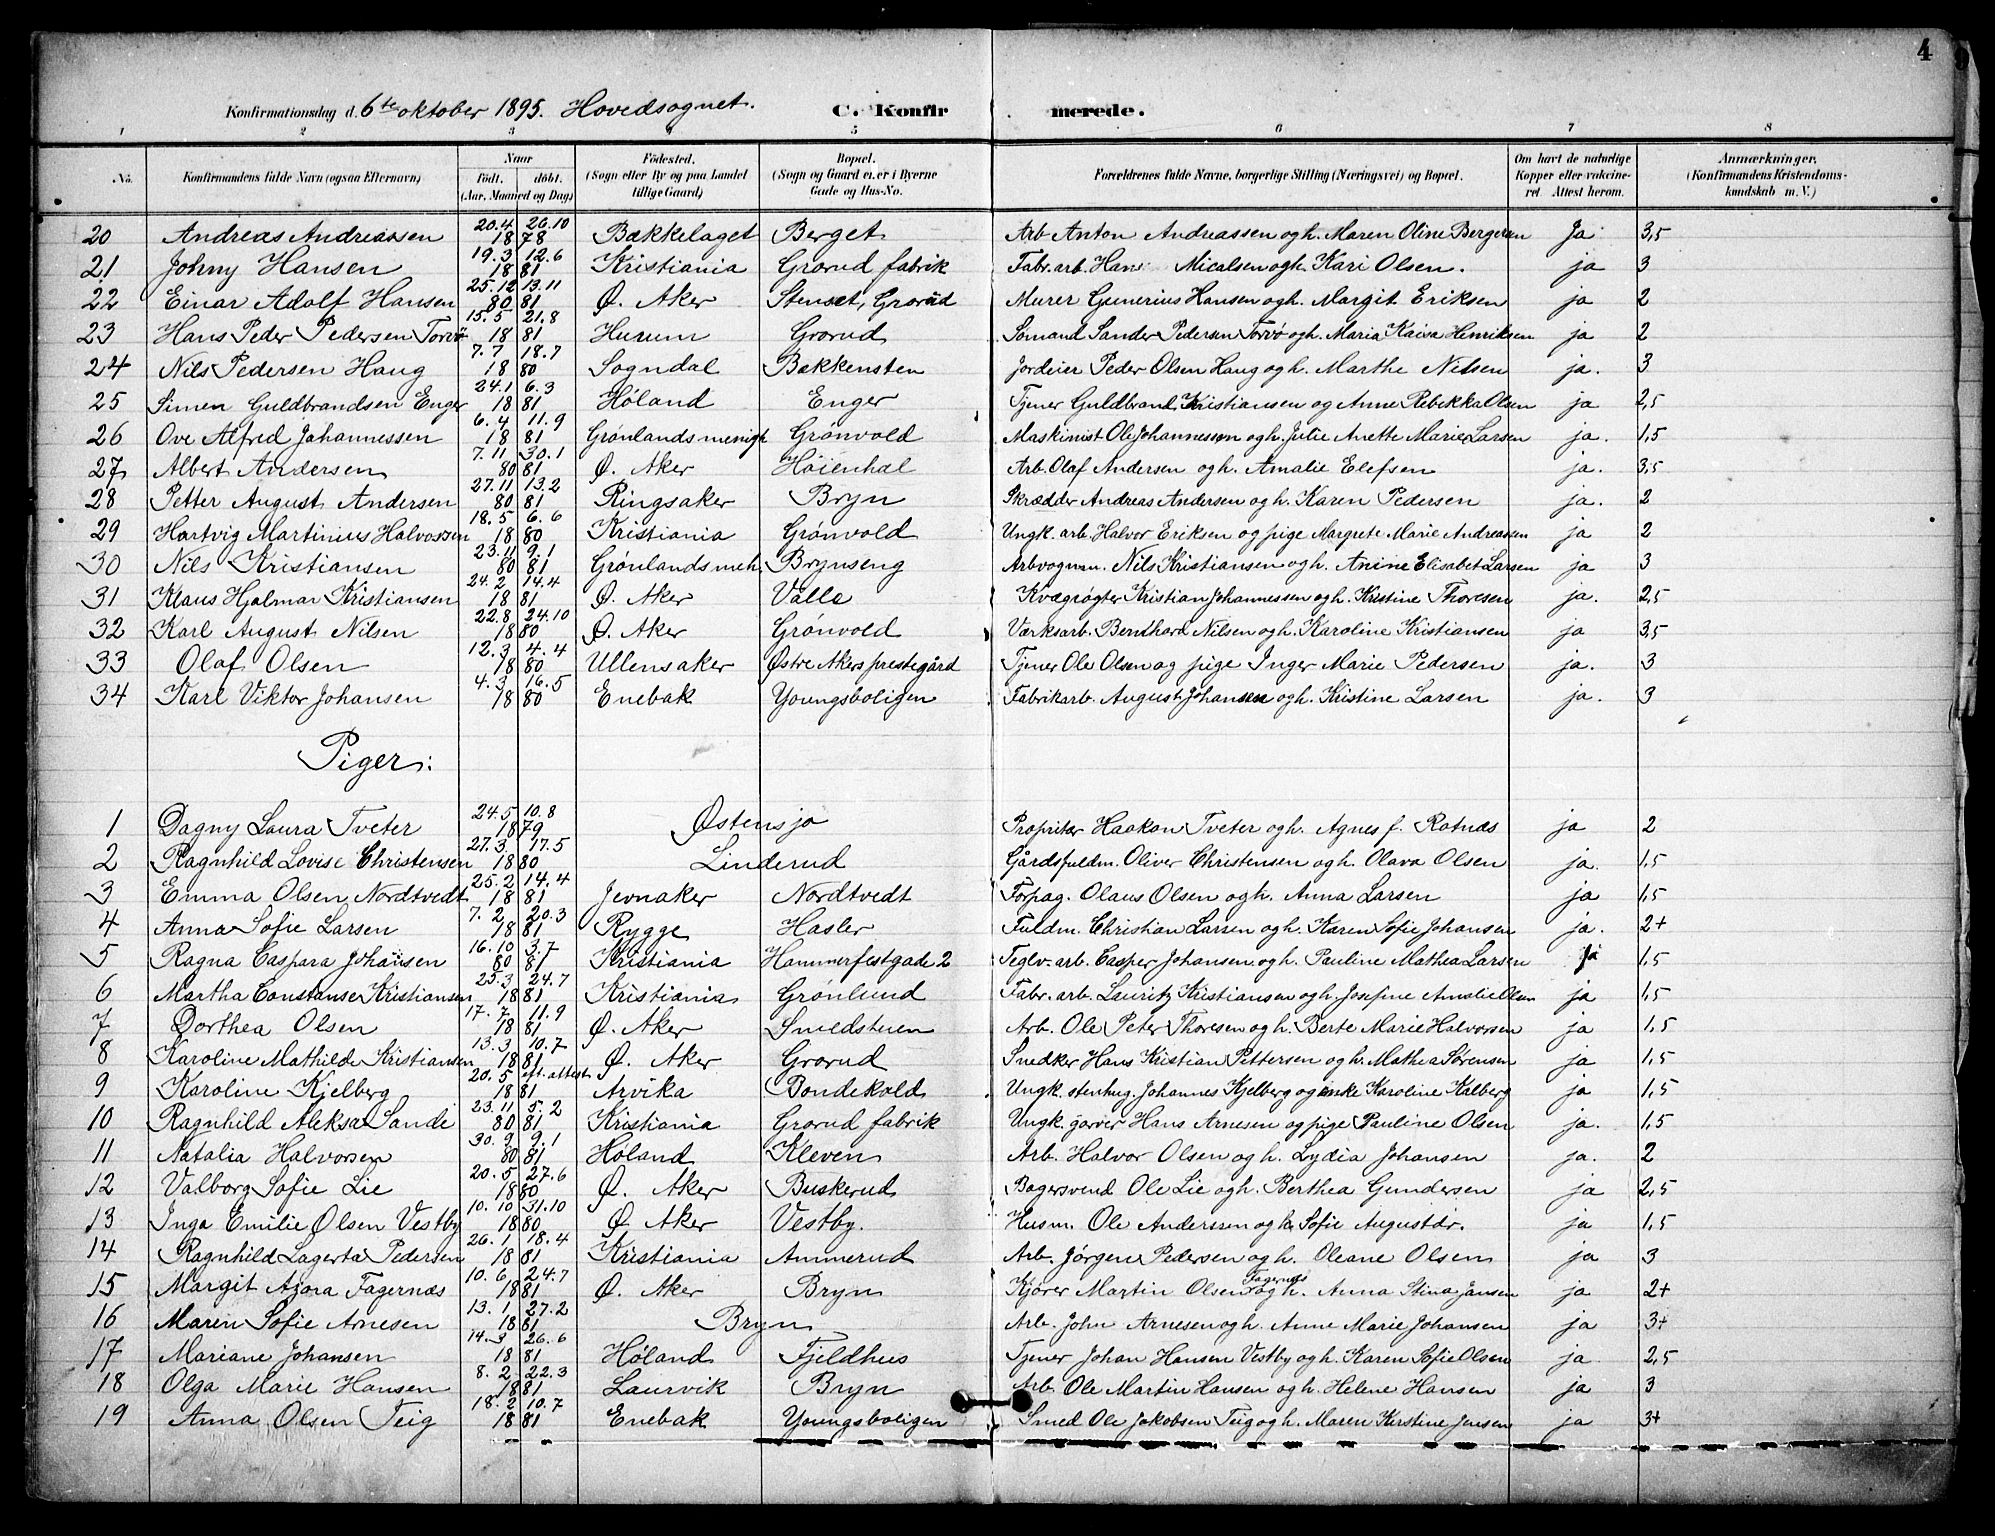 4
Konfirmationsdag d. 6te oktober 1895. Hovedsognet. C. Konfirmerede.
1 2 3 4 5 6 7 8
No. Konfirmandens fulde Navn (ogsaa Efternavn) Naar Født. døbt. (Aar, Maaned og Dag) Fødested. (Sogn eller By og paa Landet tillige Gaard) Bopæl. (Sogn og Gaard el. er i Byerne Gade og Hus-No. Forældrenes fulde Navne, borgerlige Stilling (Næringsvei) og Bopæl. Om havt de naturlige Kopper eller vaccineret Attest herom. Anmærkninger. (Konfirmandens Kristendomskundskab m. V.)
20 Andreas Andreassen 20.4 1878 26.10 Bækkelaget Berget Arb. Anton Andreassen og h. Maren Oline Bergersen Ja 3,5
21 Johny Hansen 19.3 12.6 1881 Kristiania Grorud fabrik Fabr. arb. Hans Micalsen og h. Kari Olsen. ja 3
22 Einar Adolf Hansen 25.12 80 13.11 81 Ø. Aker Stenset, Grorud Murer Gunerius Hansen og h. Margit Eriksen ja 2
23 Hans Peder Pedersen Torvø 15.5 21.8 1881 Hurum Grorud Sømand Sander Pedersen Torvø og h. Maria Kaisa Henriksen ja 2
24 Nils Pedersen Haug 7.7 18.7 1880 Sogndal Bakkensten Jordeier Peder Olsen Haug og h. Marthe Nilsen ja. 3
25 Simen Guldbrandsen Enger 24.1 6.3 1881 Høland Enger Tjener Guldbrand Kristiansen og Anne Rebekka Olsen ja 2,5
26 Ove Alfred Johannessen 6.4 11.9 1881 Grønlands menigh Grønvold Maskinist Ole Johannesson og h. Julie Anette Marie Larsen ja. 1,5
27 Albert Andersen 7.11 80 30.1 81 Ø. Aker Høienhal Arb. Olaf Andersen og h. Amalie Elefsen ja. 3,5
28 Petter August Andersen 27.11 80 13.2 81 Ringsaker Bryn Skrædder Andreas Andersen og h. Karen Pedersen ja. 2
29 Hartvig Martinius Halvorsen 18.5 6.6 1880 Kristiania Grønvold Ungk. arb. Halvor Eriksen og pige Margrete Marie Andreassen ja 2
30 Nils Kristiansen 23.11 80 9.1 81 Grønlands meh. Brynseng Arbvognm. Nils Kristiansen og h. Anine Elisabet Larsen ja 3
31 Klaus Hjalmar Kristiansen 24.2 14.4 1881 Ø. Aker Valle Kvægrøgter Kristian Johannessen og h. Kristine Thoresen ja. 2,5
32 Karl August Nilsen 22.8 24.10 1880 Ø. Aker Grønvold Værksarb. Bernthard Nilsen og h. Karoline Kristiansen ja 3,5
33 Olaf Olsen 12.3 4.4 1880 Ullensaker Østre Akers prestegård Tjener Ole Olsen og pige Inger Marie Pedersen ja. 3
34 Karl Viktor Johansen 4.3 16.5 1880 Enebak Youngsboligen Fabrikarb. August Johansen og h. Kristine Larsen ja. 3
Piger:
1 Dagny Laura Tveter 24.5 10.8 1879 Østensjø Propritær Haakon Tveter og h. Agnes f. Rotnæs ja 2
2 Ragnhild Lovise Christensen 27.3 17.5 1880 Linderud Gårdsfuldm. Oliver Christensen og h. Olava Olsen ja. 1,5
3 Emma Olsen Nordtvedt 25.2 14.4 1881 Jevnaker Nordtvedt Forpag. Olaus Olsen og h. Anna Larsen ja 1,5
4 Anna Sofie Larsen 7.2 20.3 1881 Rygge Hasler Fuldm. Christian Larsen og h. Karen Sofie Johansen ja. 2+
5 Ragna Caspara Johansen 16.10 80 3.7 81 Kristiania Hammerfestgade 2 Teglv. arb. Casper Johansen og h. Pauline Mathea Larsen ja 1,5
6 Martha Constanse Kristiansen 25.3 24.7 1881 Kristiania Grønlund Fabr. arb. Lauritz Kristiansen og h. Josefine Amalie Olsen ja 1,5
7 Dorthea Olsen 17.7 11.9 1881 Ø. Aker Smedstuen Arb. Ole Peter Thoresen og h. Berte Marie Halvorsen ja 1,5
8 Karoline Mathilde Kristiansen 13.3 10.7 1881 Ø. Aker Grorud Snedker Hans Kristian Pettersen og h. Mathea Sørensen ja 1,5
9 Karoline Kjelberg 20.5 eft. attest 1881 Arvika Bondekold Ungk. stenhug. Johannes Kjelberg og enke Karoline Kalberg ja 1,5
10 Ragnhild Aleksa Sande 23.11 80 5.2 81 Kristiania Grorud fabrik Ungk. garver Hans Arnesen og pige Pauline Olsen ja. 1,5
11 Natalia Halvorsen 30.9 80 9.1 81 Høland Kleven Arb. Halvor Olsen og h. Lydia Johansen ja. 2
12 Valborg Sofie Lie 20.5 27.6 1880 Ø. Aker Buskerud Bagersvend Ole Lie og h. Berthea Gundersen ja 2,5
13 Inga Emilie Olsen Vestby 10.10 31.10 1880 Ø. Aker Vestby. Husm. Ole Anderssen og h. Sofie Augustdr. ja 1,5
14 Ragnhild Lagerta Pedersen 26.1 18.4 1881 Kristiania Ammerud Arb. Jørgen Pedersen og h. Oleane Olsen ja 3
15 Margit Azora Fagernæs 10.6 24.7 1881 Ø. Aker Bryn Kjører Martin Olsen Fagernæs og h. Anna Stina Jansen ja 2+
16 Maren Sofie Arnesen 13.1 27.2 1881 Bryn Arb. John Arnesen og h. Anne Marie Johansen ja 3+
17 Mariane Johansen 14.3 26.6 1881 Høland Fjeldhus Tjener Johan Hansen Vestby og h. Karen Sofie Olsen ja 2,5
18 Olga Marie Hansen 8.2 22.3 1881 Laurvik Bryn Arb. Ole Martin Hansen og h. Helene Hansen ja 3
19 Anna Olsen Teig 18.2 10.7 1881 Enebak Youngsboligen Smed Ole Jakobsen Teig og h. Maren Kirstine Jensen ja 3+